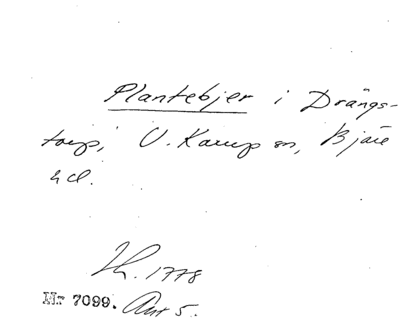 Plantebjer i Drängs-
torp, V. Karup sn, Bjäre
hd.
Th. 1778
Nr 7099. Ant 5.